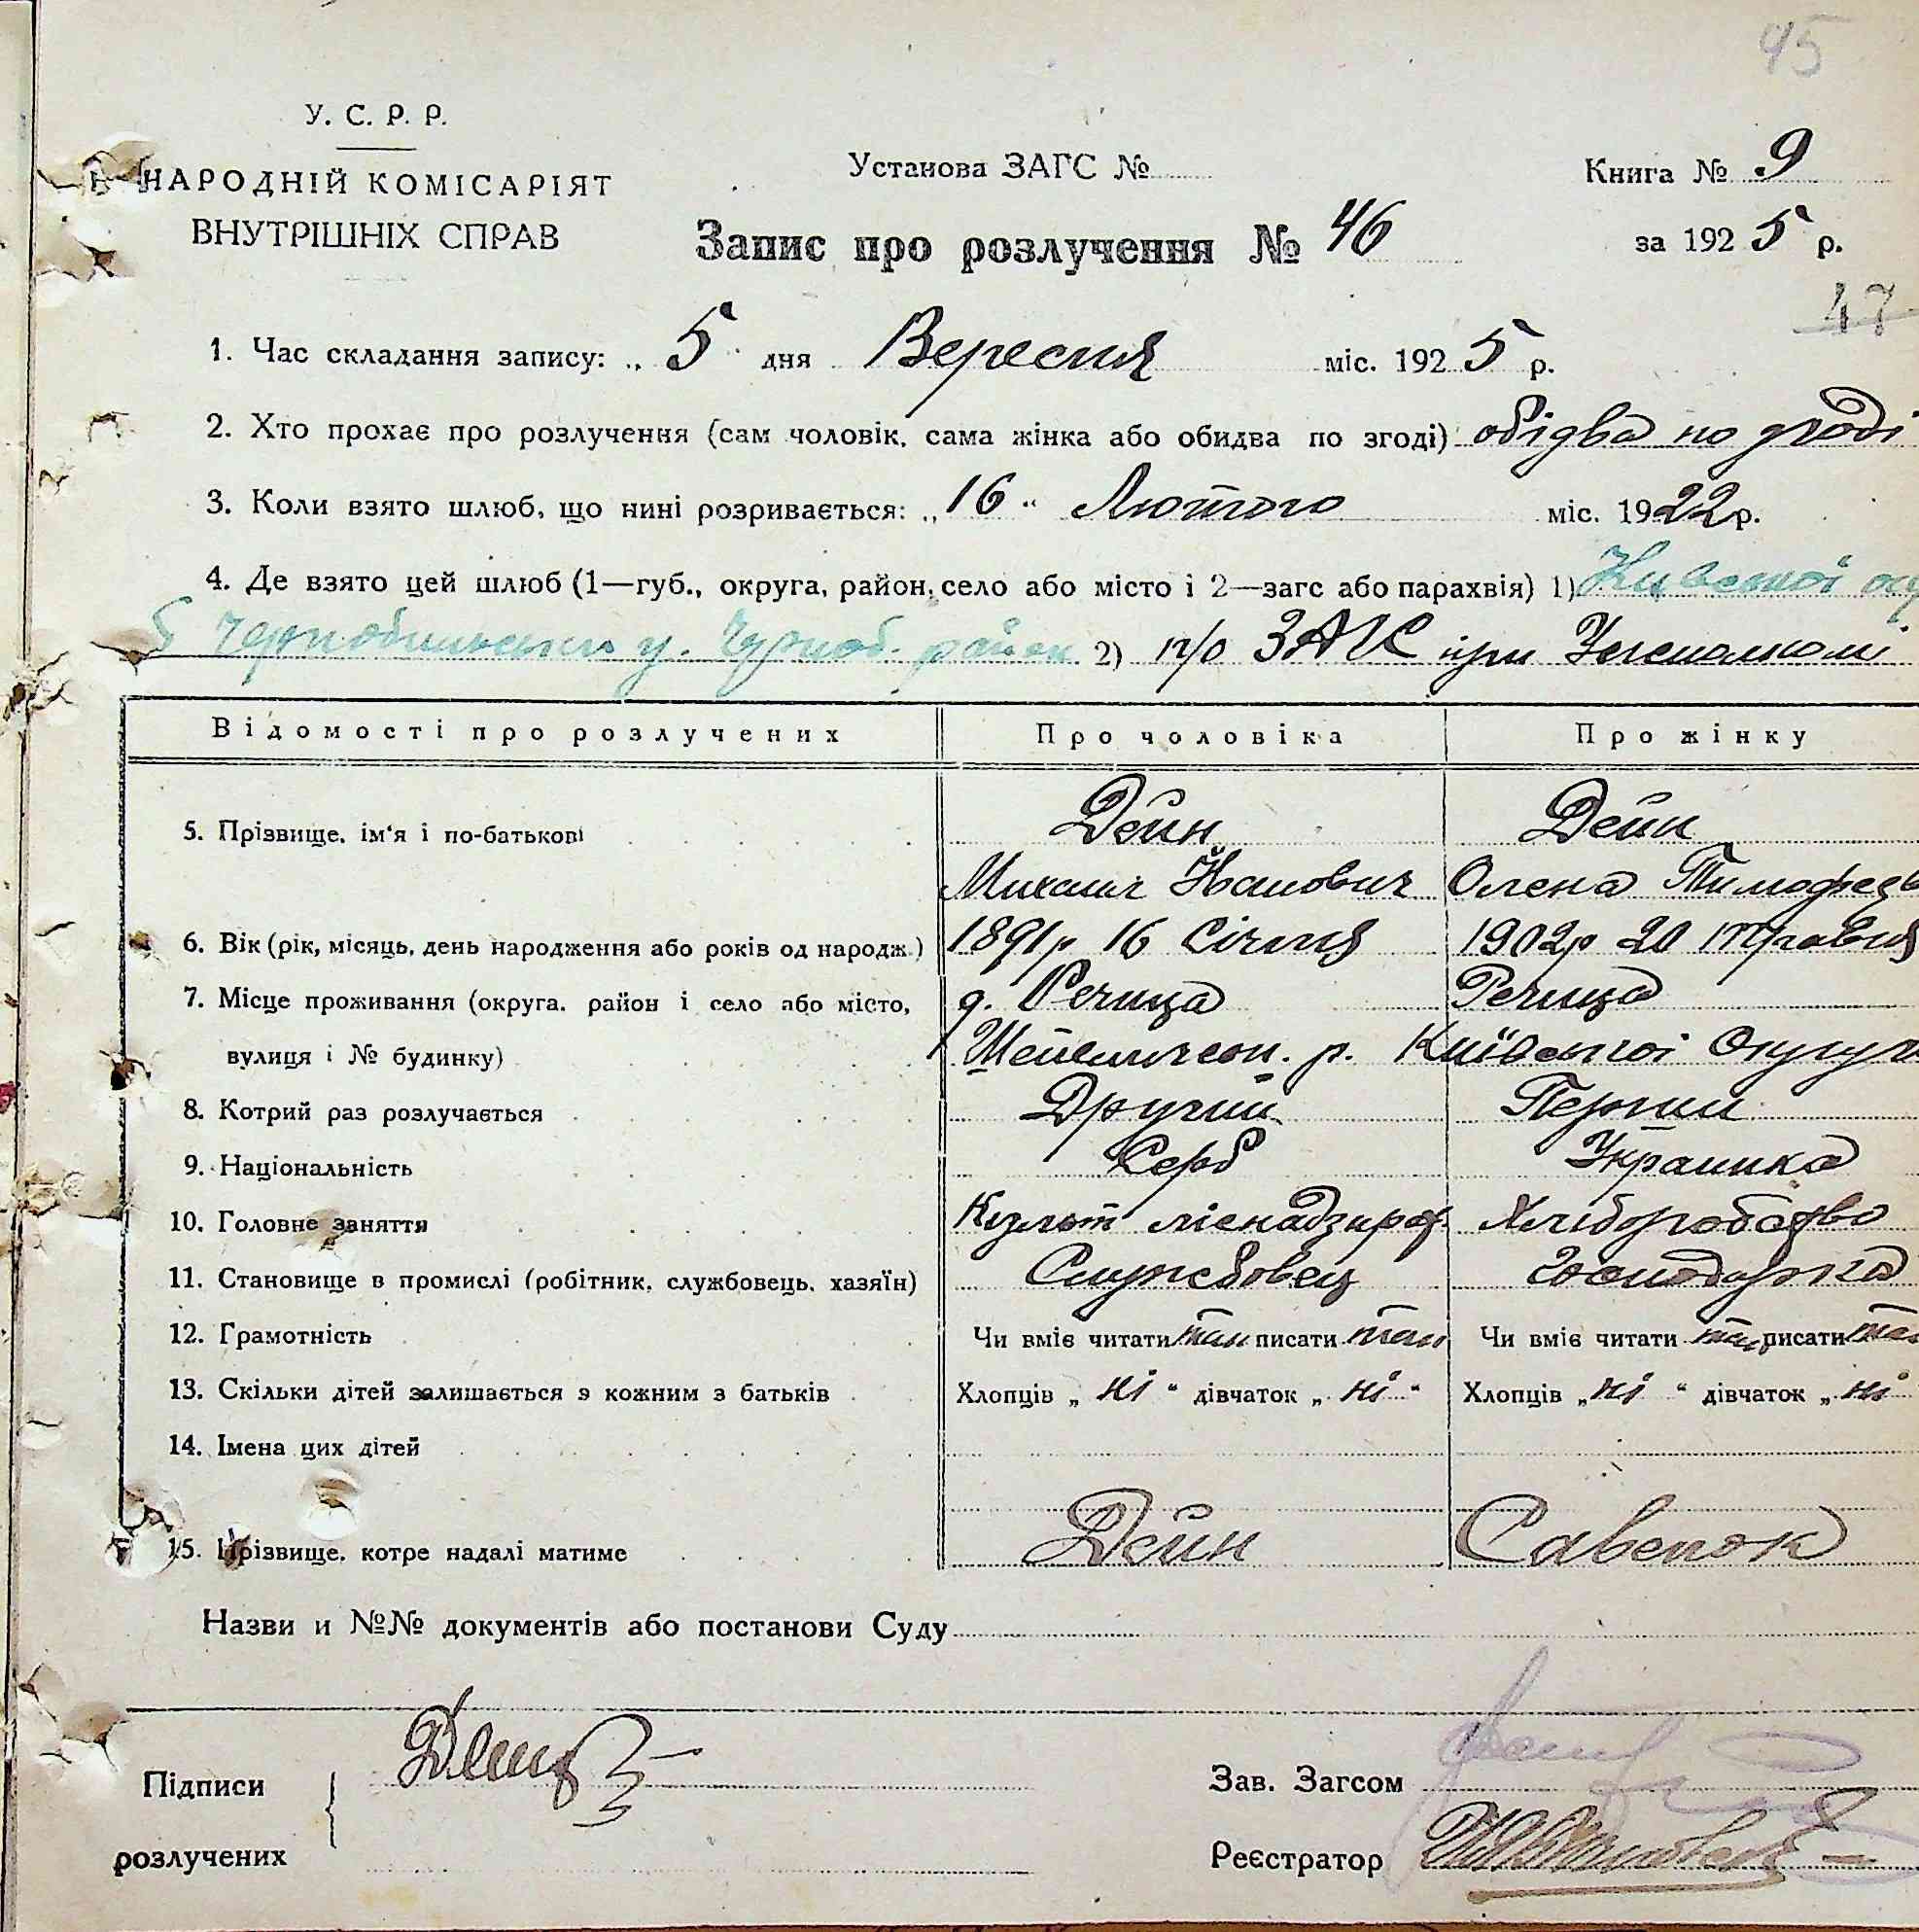 45
У. С. Р. Р.
НАРОДНІЙ КОМІСАРІЯТ
ВНУТРІШНІХ СПРАВ
Установа ЗАГС №
Книга № 9
Запис про розлучення № 46
за 1925 р.
47
1. Час складання запису: „ 5 " дня Вересня міс. 1925 р.
2. Хто прохає про розлучення (сам чоловік, сама жінка або обидва по згоді) обідва по згоді
3. Коли взято шлюб, що нині розривається: „16" Лютого міс. 1922 р.
4. Де взято цей шлюб (1—губ., округа, район, село або місто і 2—загс або парахвія) 1) Київської
Чорноб. район 2) п/о ЗАГС при
Відомості про розлучених Про чоловіка Про жінку
5. Прізвище, ім'я і по-батькові Дейн Дейн
Михаил Іванович Олена Тимофеев
6. Вік (рік, місяць, день народження або років од народж.) 1891р 16 Січня 1902р 20 травня
7. Місце проживання (округа, район і село або місто, д. Речица Речица
вулиця і № будинку) Шепеличськ. р. Київської Округи
8. Котрий раз розлучається Другий Перший
9. Національність Серб Українка
10. Головне заняття Хліборобство
11. Становище в промислі (робітник, службовець, хазяїн) Службовец господарка
12. Грамотність Чи вміє читати так писати так Чи вміє читати так писати так
13. Скільки дітей залишається з кожним з батьків Хлопців „ ні " дівчаток „ ні " Хлопців „ ні " дівчаток „ ні
14. Імена цих дітей
15. Прізвище, котре надалі матиме Дейн Савенок
Назви и №№ документів або постанови Суду
Підписи
розлучених
Зав. Загсом
Реєстратор